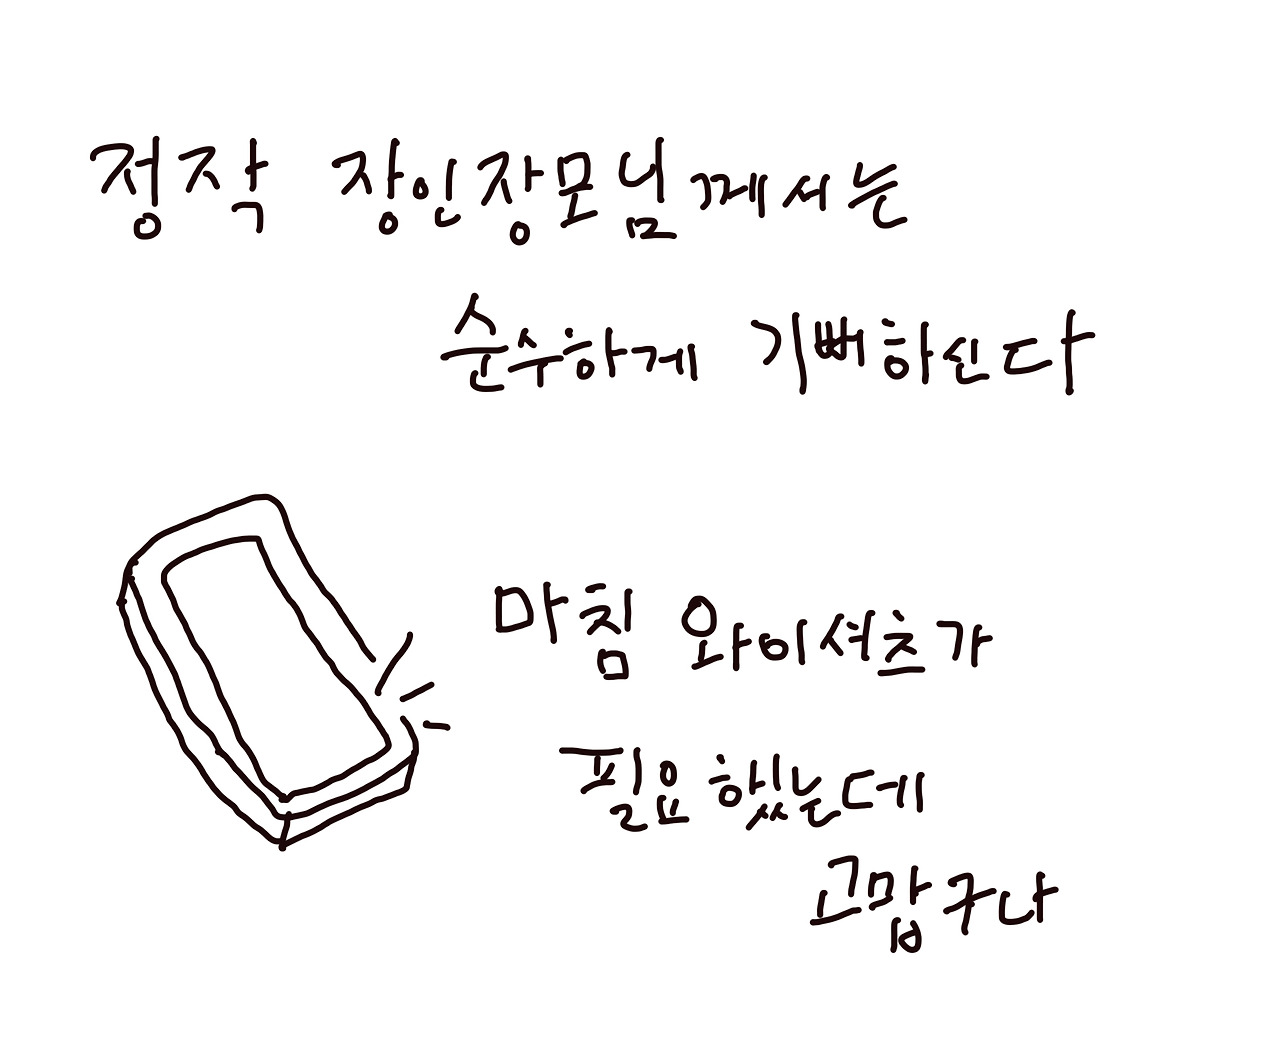 정작 장인장모님께서는
순수하게 기뻐하신다
마침 와이셔츠가
필요했는데
고맙구나